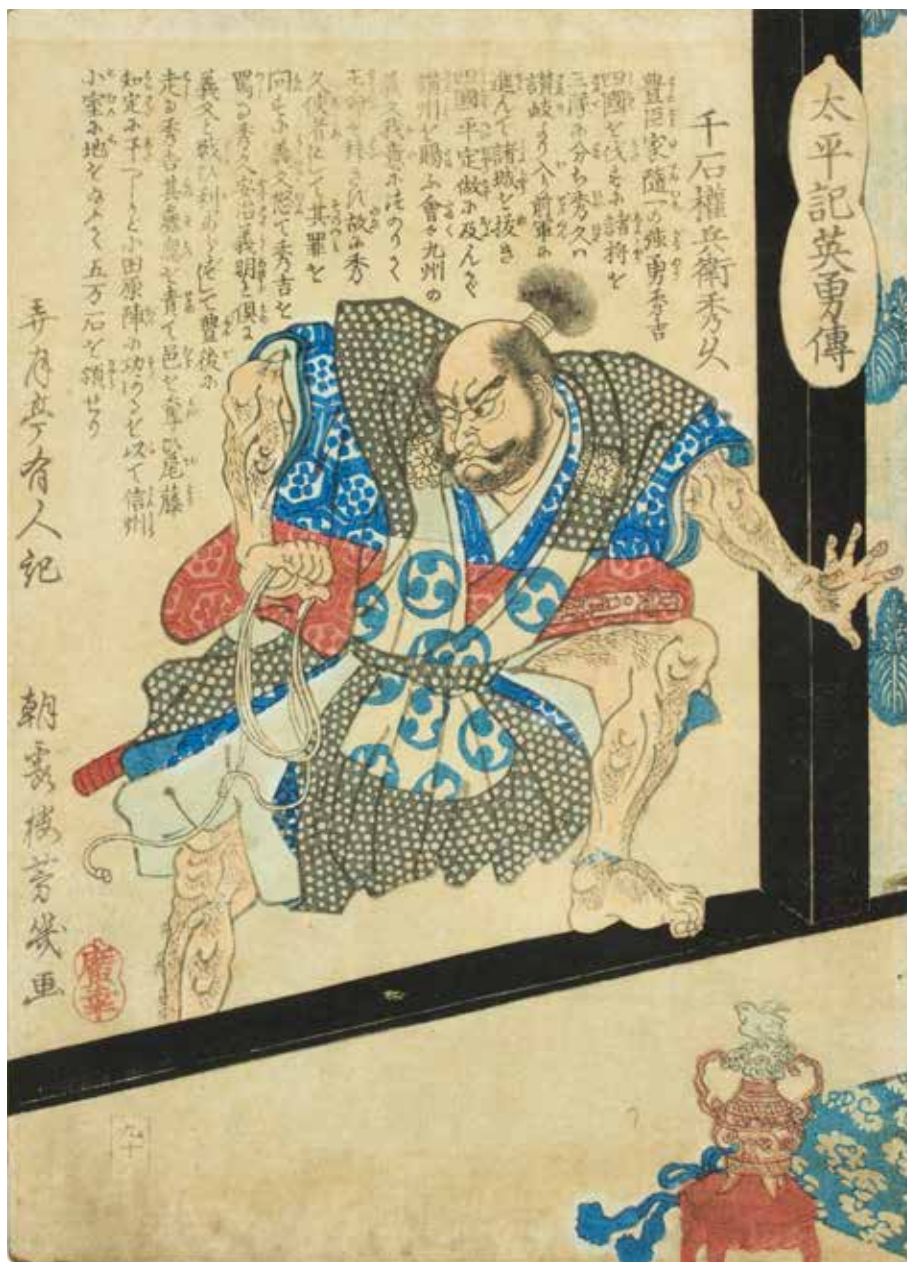 太平記英勇傳
千石權兵衛秀久
豊臣家隨一の強勇秀吉
四國を伐るに諸将を
三隊に分ち秀久ハ
讃岐より入り前軍に
進んで諸城を抜き
四國平定做に及んで
讃州を賜ふ會々九州の
義久我
王命を 故に秀
久使者として其罪を
問ふに義久怒て秀吉を
罵る秀久 義明と倶に
義久と戦ひ利あらずして豊後に
走る秀吉其 を責て邑を奪ひ尾藤
知定に 小田原陣に功あるを以て信州
小室に地を 五万石を領せり
弄月亭有人記
朝霞楼芳幾画
廣幸
九十